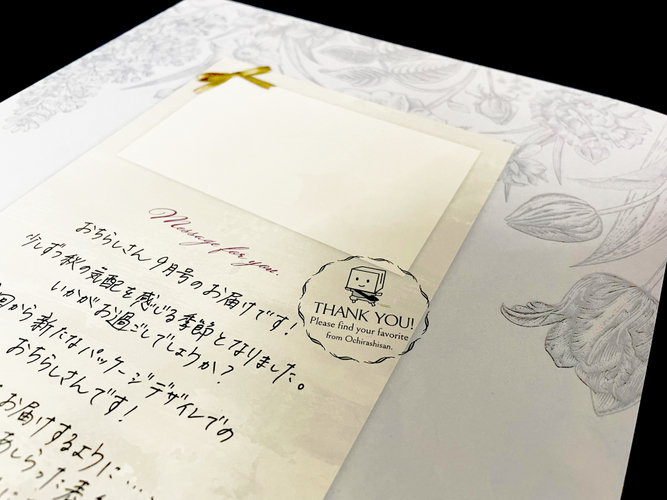 Message for you.
おちらしさん9月号のお届けです!
少しずつ秋の気配を感じる季節となりました。
いかがお過ごしでしょうか?
回から新たなパッケージデザインでの
おちらしさんです!
お届けするように…
あしらった表
THANK YOU!
Please find your favorite
from Ochirashisan.